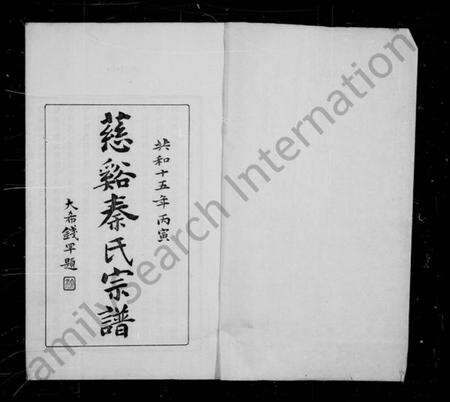 共和十五年丙寅
慈谿秦氏宗譜
大希錢罕題
FamilySearch International